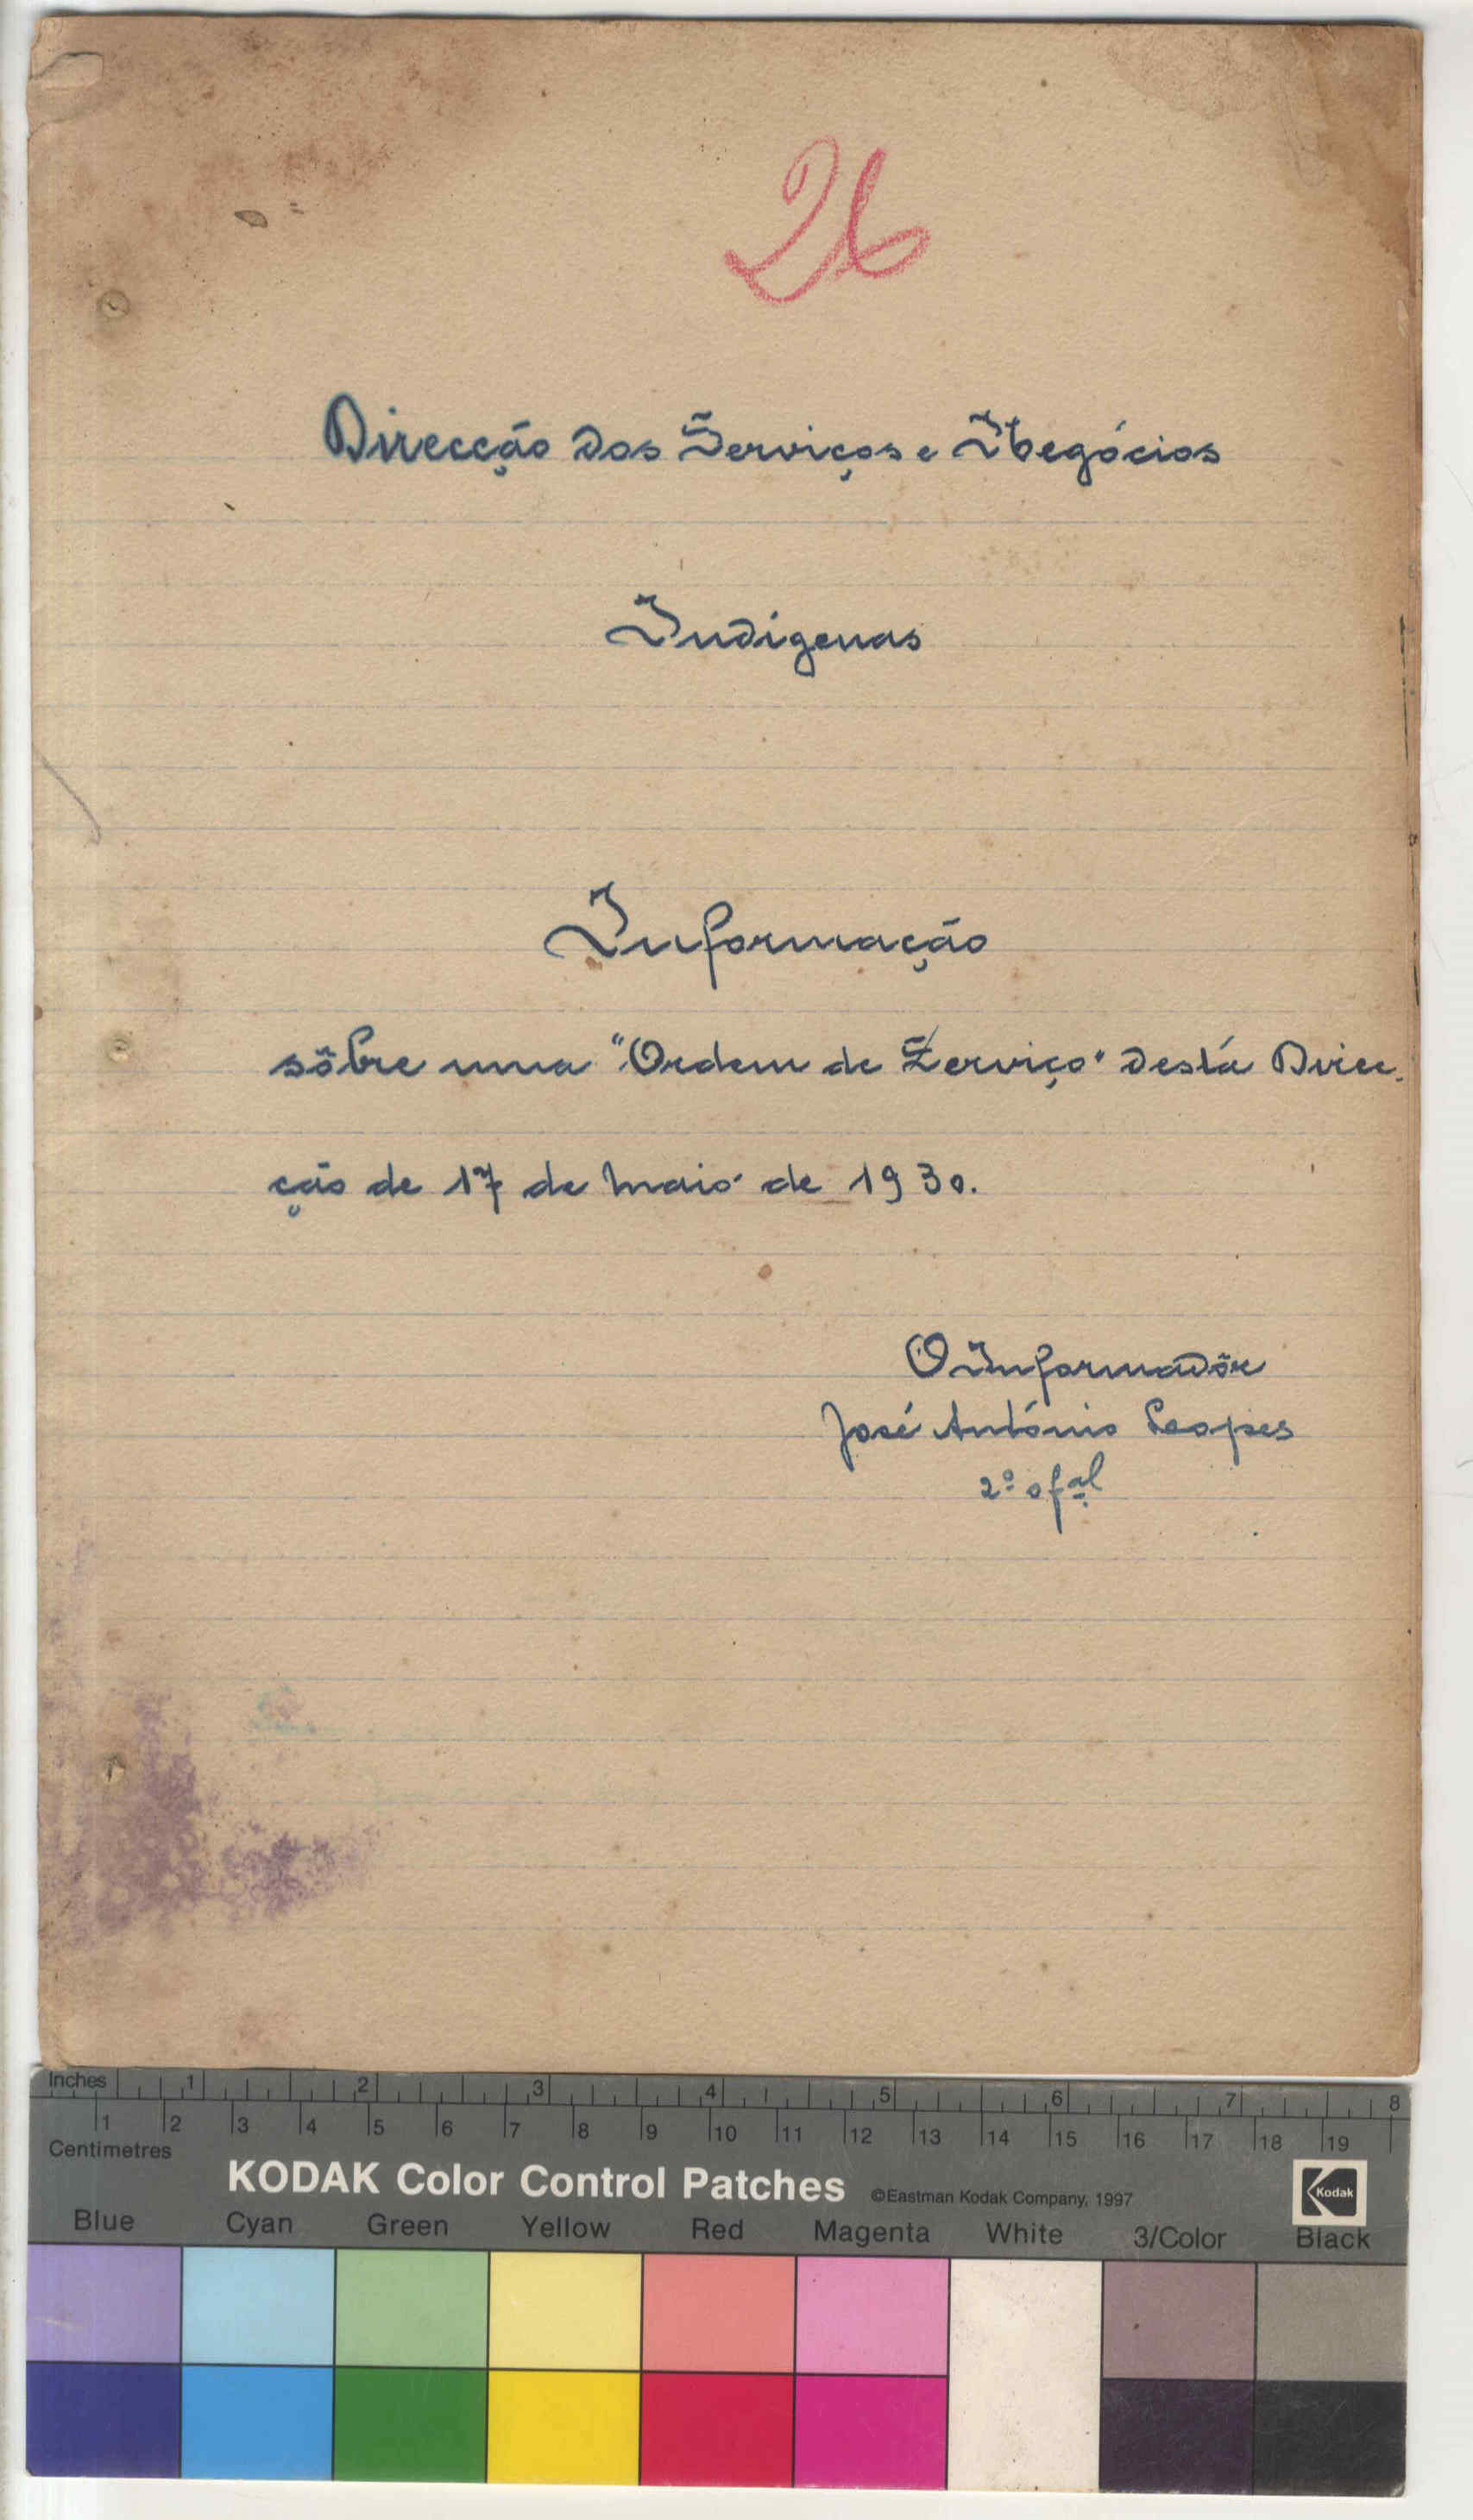 26
Direcção dos Serviços e Negócios
Indígenas
Informação
sôbre uma "Ordem de Serviço" desta Direc-
ção de 17 de Maio de 1930.
O Informadôr
José António Lopes
2º ofal
Inches 1 2 3 4 5 6 7 8
1 2 3 4 5 6 7 8 9 10 11 12 13 14 15 16 17 18 19
Centimetres
KODAK Color Control Patches ©Eastman Kodak Company, 1997 Kodak
Blue Cyan Green Yellow Red Magenta White 3/Color Black